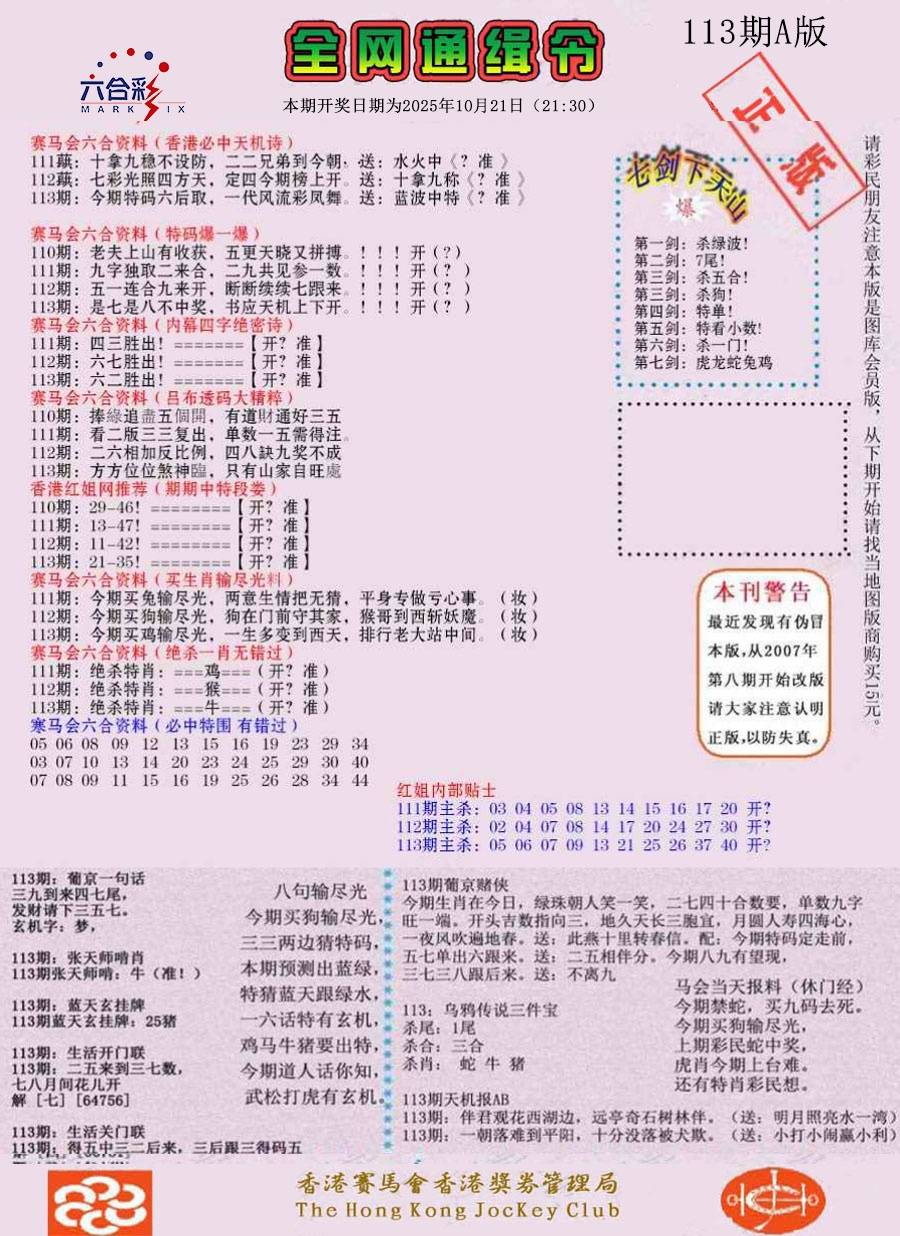 113期A版
全网通缉令
六合彩
MARK SIX
本期开奖日期为2025年10月21日（21:30）
正版
赛马会六合资料（香港必中天机诗）
111藕：十拿九稳不设防，二二兄弟到今朝，送：水火中《？准 》
112藕：七彩光照四方天，定四今期榜上开。送：十拿九称《？准 》
113期：今期特码六后取，一代风流彩凤舞。送：蓝波中特《？准 》
赛马会六合资料（特码爆一爆）
110期：老夫上山有收获，五更天晓又拼搏。！！！开（?）
111期：九字独取二来合，二九共见参一数。！！！开（? ）
112期：五一连合九来开，断断续续七跟来。！！！开（? ）
113期：是七是八不中奖，书应天机上下开。！！！开（? ）
赛马会六合资料（内幕四字绝密诗）
111期：四三胜出！=======【开？准】
112期：六七胜出！=======【开？准】
113期：六二胜出！=======【开？准】
赛马会六合资料（吕布透码大精粹）
110期：捧綠追盡五個開，有道財通好三五
111期：看二版三三复出，单数一五需得注。
112期：二六相加反比例，四八缺九奖不成
113期：方方位位煞神臨，只有山家自旺處
香港红姐网推荐（期期中特段娄）
110期：29-46！========【开？准】
111期：13-47！========【开？准】
112期：11-42！========【开？准】
113期：21-35！========【开？准】
赛马会六合资料（买生肖输尽光料）
111期：今期买兔输尽光，两意生情把无猜，平身专做亏心事。（妆）
112期：今期买狗输尽光，狗在门前守其家，猴哥到西斩妖魔。（妆）
113期：今期买鸡输尽光，一生多变到西天，排行老大站中间。（妆）
赛马会六合资料（绝杀一肖无错过）
111期：绝杀特肖：===鸡===（开？准）
112期：绝杀特肖：===猴===（开？准）
113期：绝杀特肖：===牛===（开？准）
寒马会六合资料（必中特围 有错过）
05 06 08 09 12 13 15 16 19 23 29 34
03 07 10 13 14 20 23 24 25 29 30 40
07 08 09 11 15 16 19 25 26 28 34 44
七剑下天山
爆
第一剑：杀绿波！
第二剑：7尾！
第三剑：杀五合！
第三剑：杀狗！
第四剑：特单！
第五剑：特看小数！
第六剑：杀一门！
第七剑：虎龙蛇兔鸡
请彩民朋友注意本版是图库会员版，从下期开始请找当地图版商购买15元。
本刊警告
最近发现有伪冒
本版,从2007年
第八期开始改版
请大家注意认明
正版,以防失真。
红姐内部贴士
111期主杀：03 04 05 08 13 14 15 16 17 20 开?
112期主杀：02 04 07 08 14 17 20 24 27 30 开?
113期主杀：05 06 07 09 13 21 25 26 37 40 开?
113期：葡京一句话
三九到来四七尾，
发财请下三五七。
玄机字：梦，
113期：张天师哨肖
113期张天师哨：牛（准！）
113期：蓝天玄挂牌
113期蓝天玄挂牌：25猪
113期：生活开门联
113期：二五来到三七数，
七八月间花儿开
解［七］［64756］
113期：生活关门联
113期：得五中三二后来，三后跟三得码五
八句输尽光
今期买狗输尽光，
三三两边猜特码，
本期预测出蓝绿，
特猜蓝天跟绿水，
一六话特有玄机，
鸡马牛猪要出特，
今期道人话你知，
武松打虎有玄机。
113期葡京赌侠
今期生肖在今日，绿珠朝人笑一笑，二七四十合数要，单数九字
旺一端。开头吉数指向三，地久天长三胞宜，月圆人寿四海心，
一夜风吹遍地春。送：此燕十里转春信。配：今期特码定走前，
五七单出六跟来。送：二五相伴分。今期八九有望现，
三七三八跟后来。送：不离九
113：乌鸦传说三件宝
杀尾：1尾
杀合：三合
杀肖： 蛇 牛 猪
马会当天报料（休门经）
今期禁蛇，买九码去死。
今期买狗输尽光，
上期彩民蛇中奖，
虎肖今期上台难。
还有特肖彩民想。
113期天机报AB
113期：伴君观花西湖边，远亭奇石树林伴。（送：明月照亮水一湾）
113期：一朝落难到平阳，十分没落被犬欺。（送：小打小闹赢小利）
香港賽馬會香港獎券管理局
The Hong Kong JocKey Club